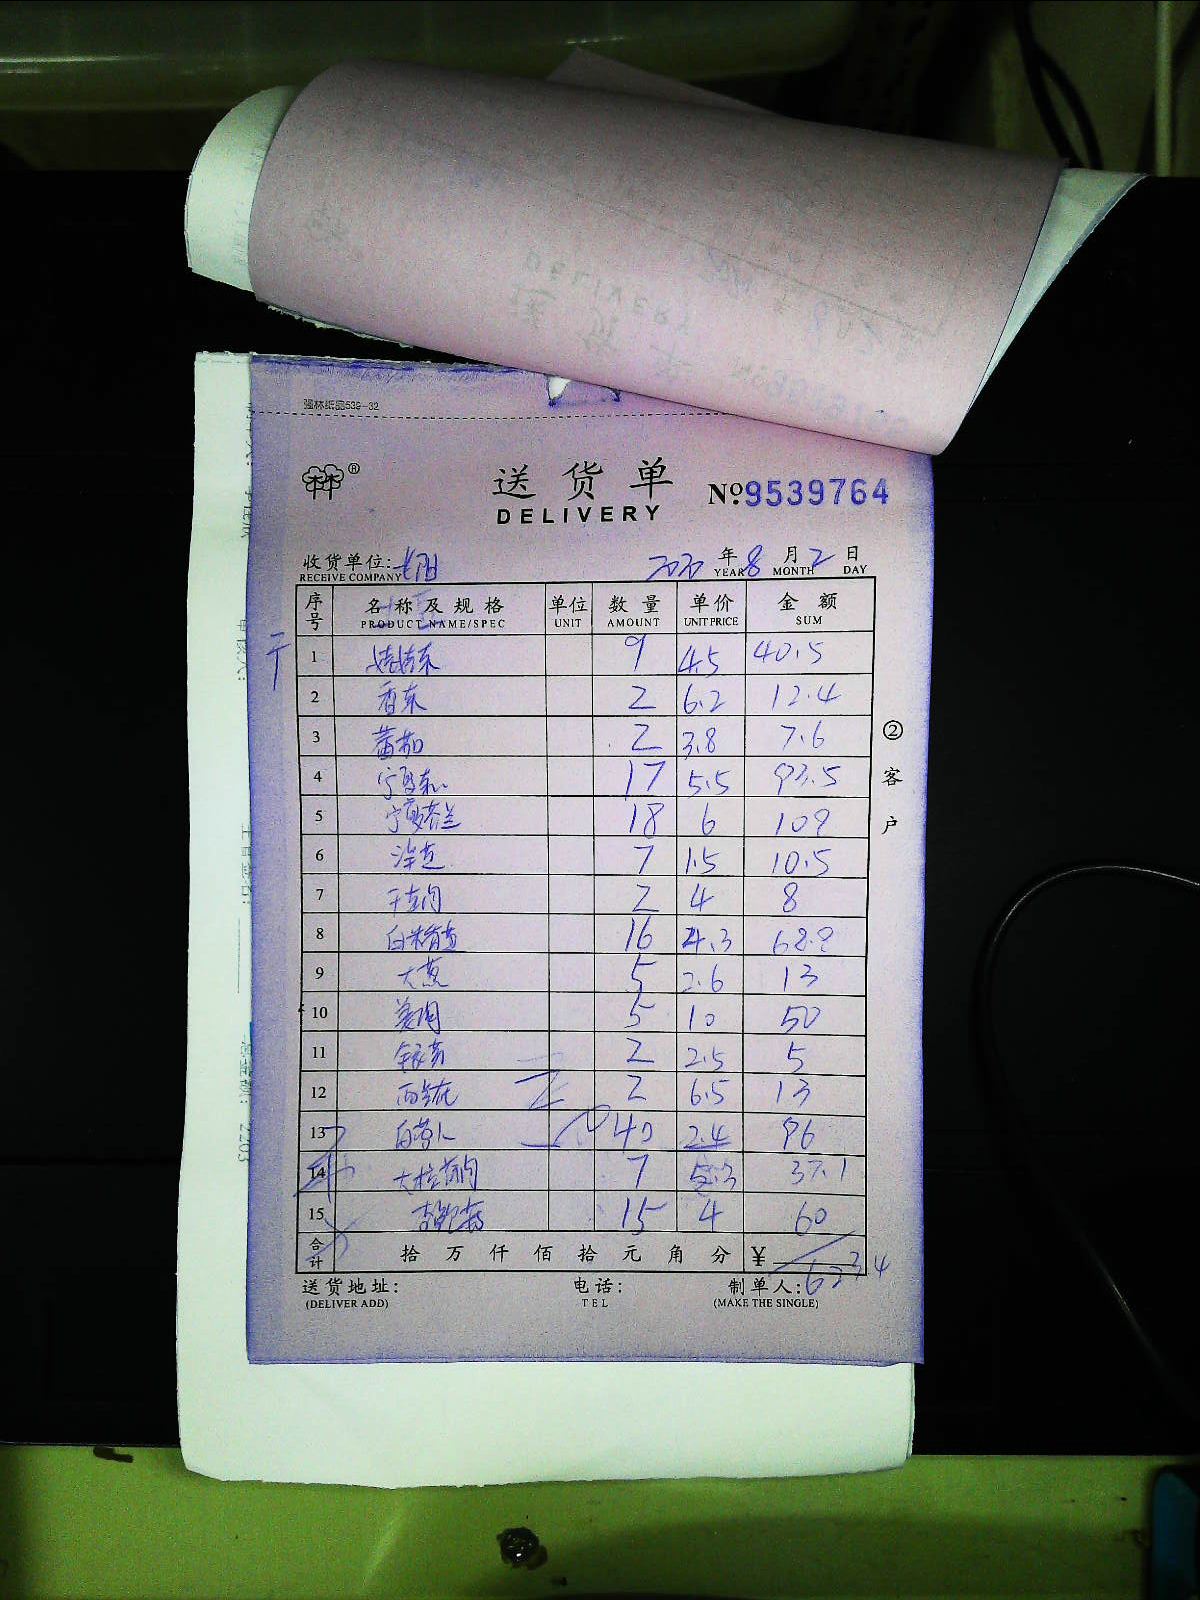 强林纸品539-32
® 送货单 №9539764
DELIVERY
收货单位: 2020年8月2日
RECEIVE COMPANY YEAR MONTH DAY
序号 名称及规格 单位 数量 单价 金额
PRODUCT NAME/SPEC UNIT AMOUNT UNIT PRICE SUM
1 娃娃菜 9 4.5 40.5
2 香菜 2 6.2 12.4
3 蕃茄 2 3.8 7.6
4 宁夏菜心 17 5.5 93.5
5 宁夏芥兰 18 6 108
6 洋芝 7 1.5 10.5
7 2 4 8
8 16 4.3 68.8
9 大葱 5 2.6 13
10 姜肉 5 10 50
11 2 2.5 5
12 西兰花 2 6.5 13
13 白萝卜 40 2.4 96
14 7 5.3 37.1
15 15 4 60
合计 拾万仟佰拾元角分 ¥ 623.4
送货地址: 电话: 制单人:
(DELIVER ADD) TEL (MAKE THE SINGLE)
②客户